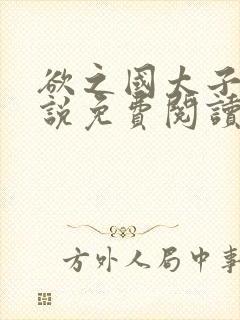 欲之國大子
說免費閱讀
方外人局中事